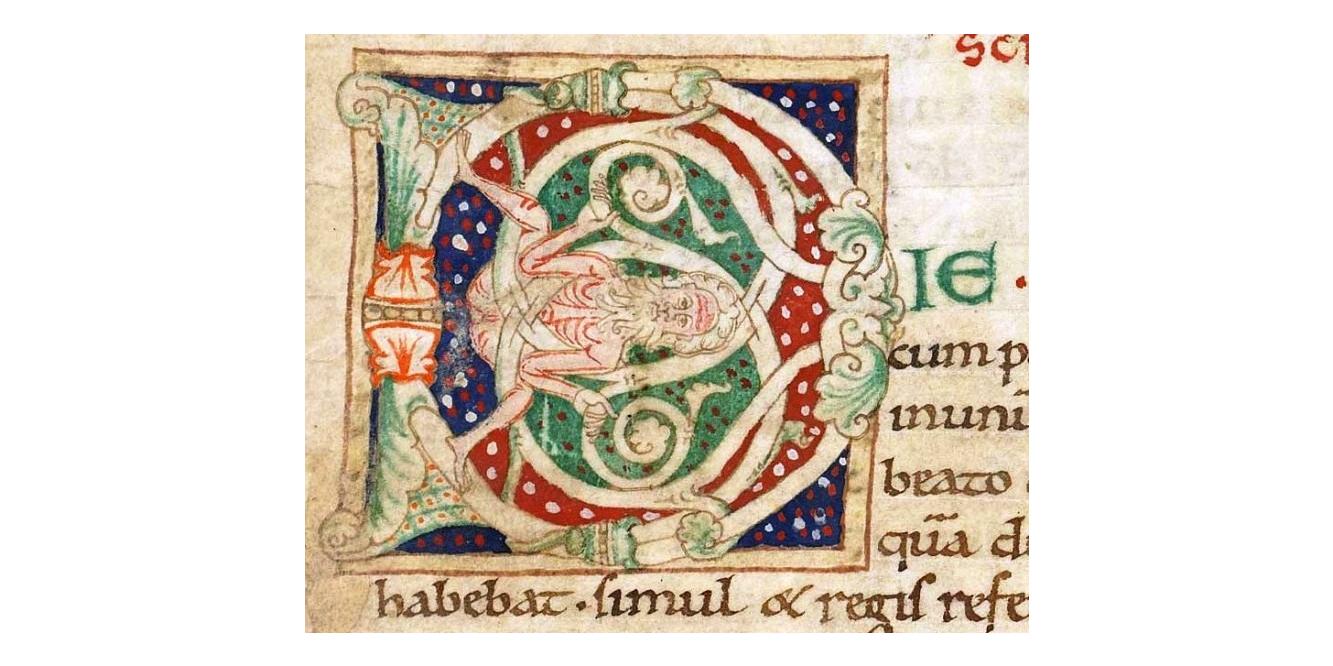 sc
D IE ·
cum p
inunū
brato
quā di
habebat · simul & regis refe